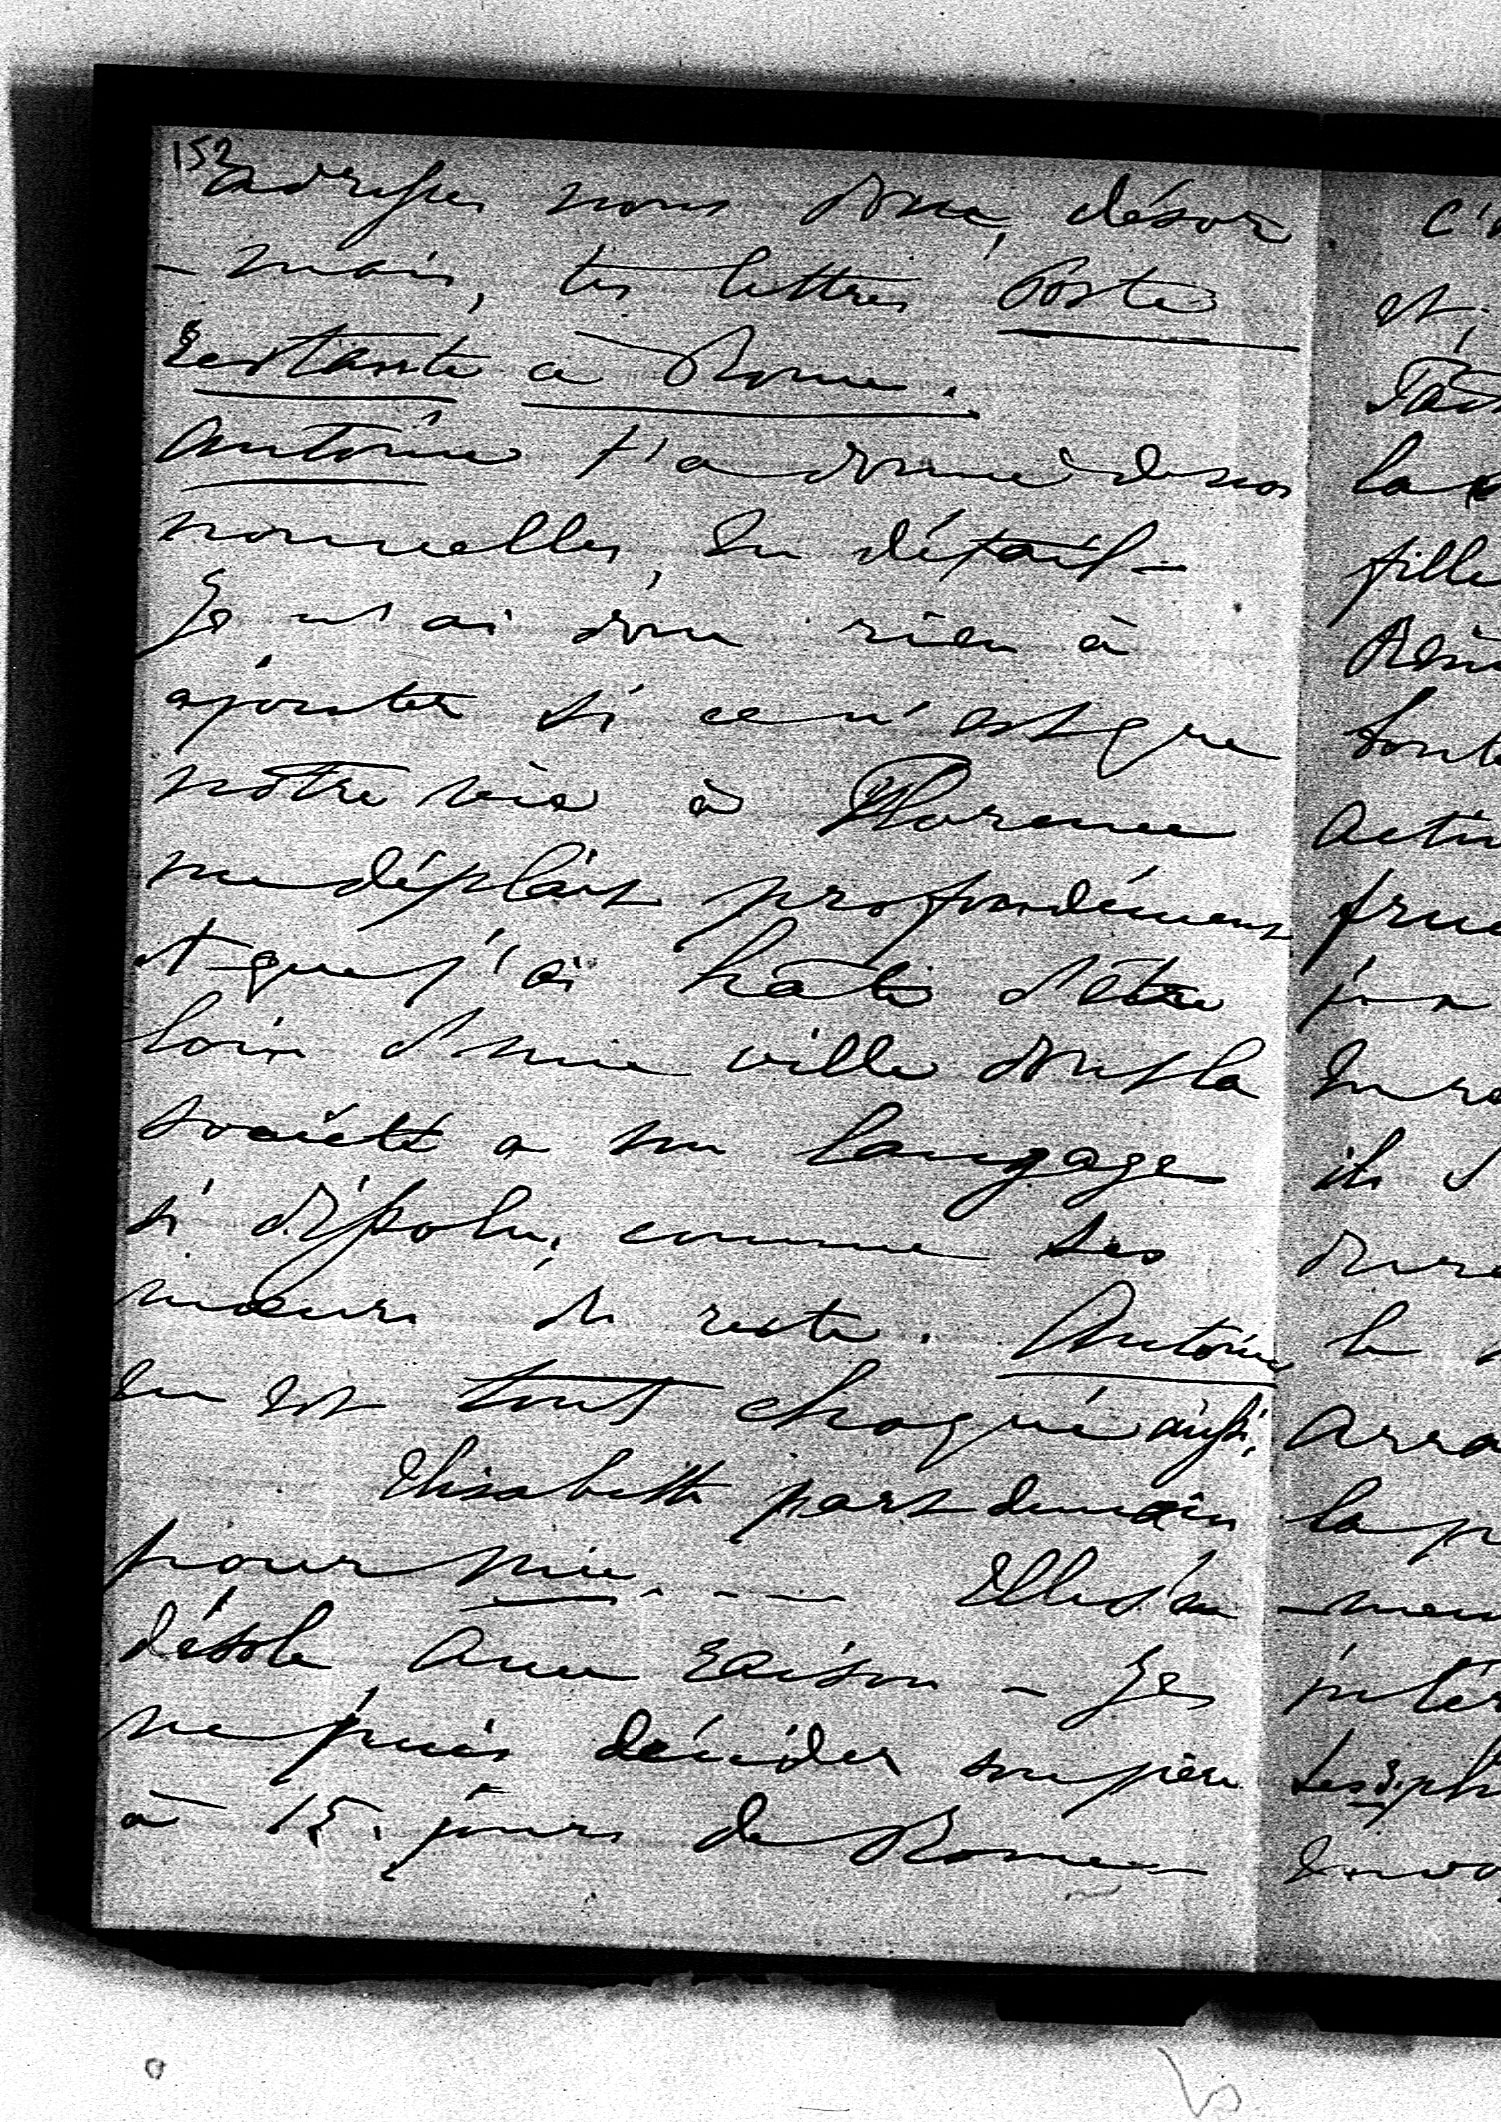 152
adresses nous donc, désor
- mais, tes lettres Poste
restante à Rome.
Antoine t'a donné de nos
nouvelles, en détail -
Je n'ai donc rien à
ajouter si ce n'est que
notre vie à Florence
me déplait profondément
et que j'ai hâte d'être
loin d'une ville dont la
société a un langage
si dissolu, comme ses
mœurs du reste. Antoine
en est tout choqué aussi.
Elisabeth part demain
pour Nice. - - - Elle s'en
désole avec raison - Je
ne puis décider son père
à 15. jours de Rome
c'
et
la
fille
tout
activ
fru
j'ai
en re
ils
dure
le
arra
la p
- men
intér
envo